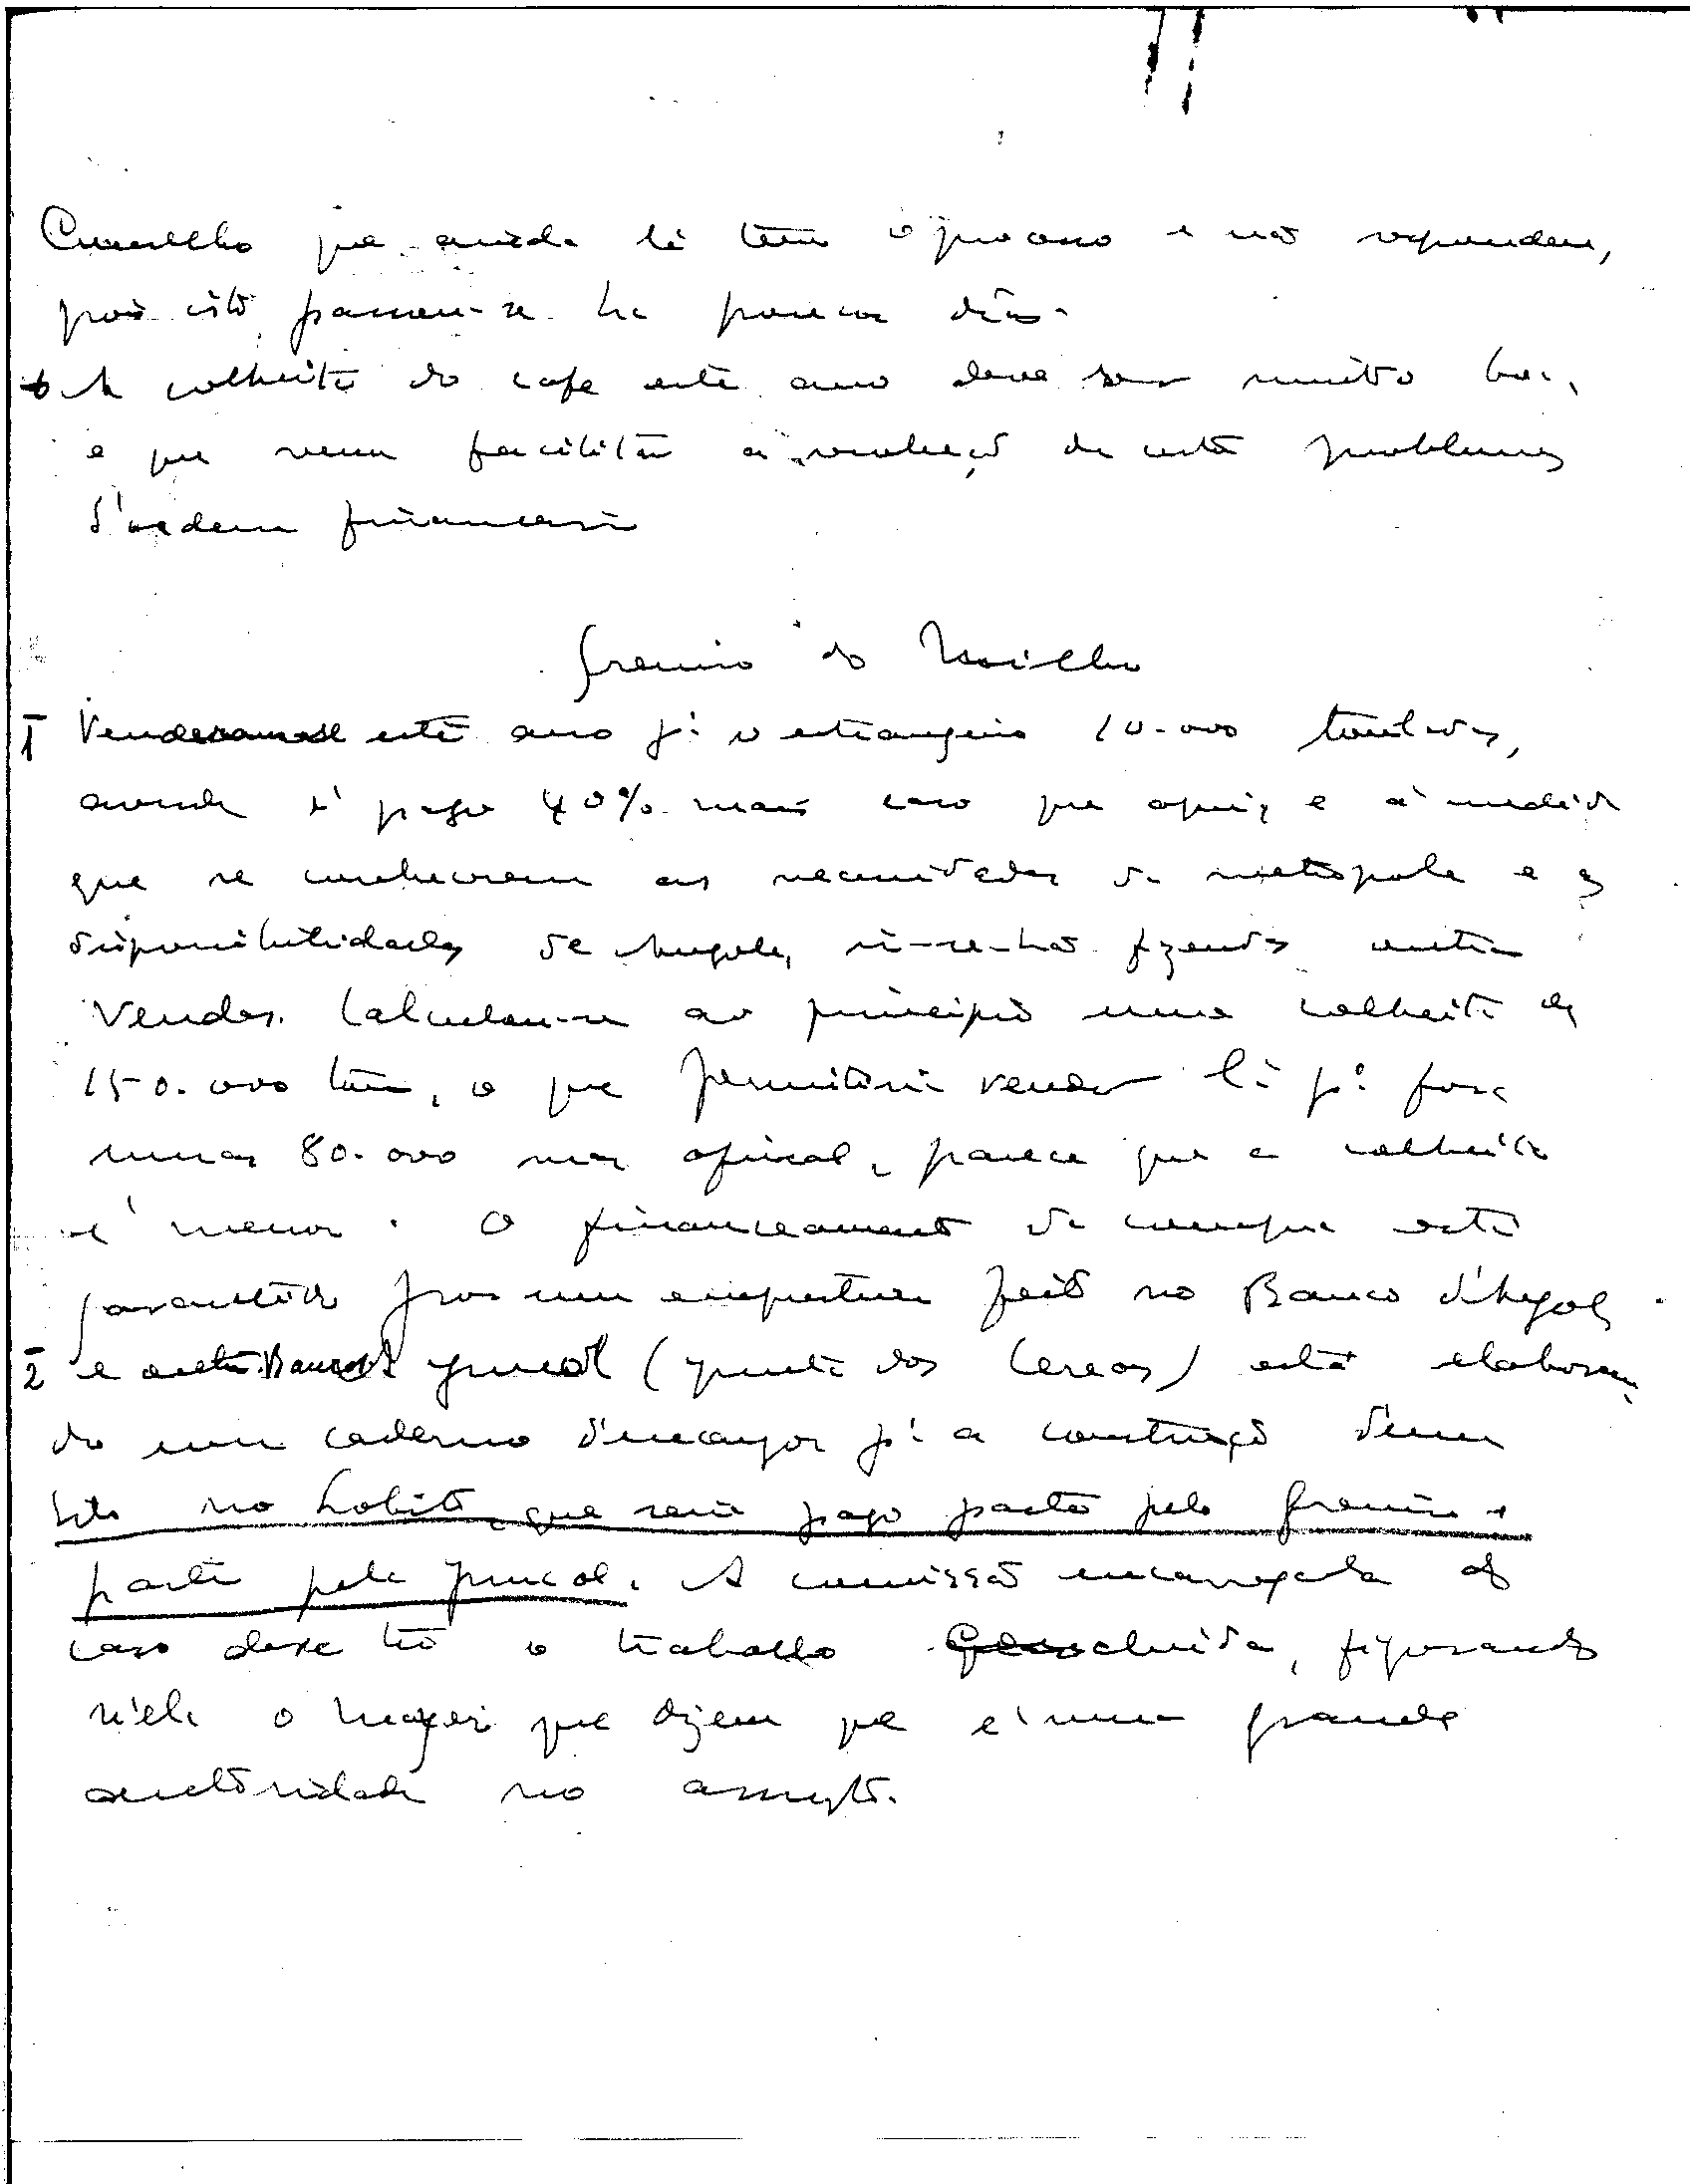 Conselho que ainda lá tem o processo e não respondeu,
pois isto passou-se ha poucos dias.
6 A colheita do café este ano deve ser muito boa,
o que vem facilitar a resolução de certos problemas
d'ordem financeira
Gremio do Milho
1 Venderam-se este ano pª o estrangeiro 10.000 toneladas,
aonde é pago 40% mais caro que aqui, e á medida
que se conhecerem as necessidades da metropole e as
disponibilidades de Angola, ir-se-hão fazendo outras
vendas. Calculou-se ao principio uma colheita de
150.000 ton, o que permitiria vender lá pª fora
umas 80.000 mas afinal, parece que a colheita
é menor. O financeamento da compra está
garantido por um emprestimo feito no Banco d'Angola
2 e a Juncal (Junta dos Cereaes) está elaboran-
do um caderno d'encargos pª a construção d'um
silo no Lobito, que será pago parte pelo Gremio e
parte pela Juncal. A comissão encarregada do
caso deve ter o trabalho concluido, figurando
n'ela o que dizem que é uma grande
auctoridade no assumpto.